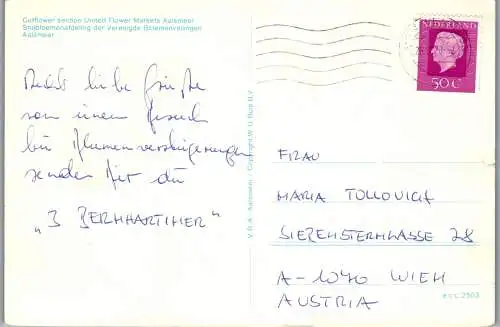 Cutflower section United Flower Markets Aalsmeer
Snijbloemenafdeling der Verenigde Bloemenveilingen
Aalsmeer
NEDERLAND
50 C
Recht liebe Grüße
von einem Besuch
bei Blumenversteigerungen
senden Dir die
"3 BERNHARTINER"
V.R.A. Aalsmeer - Copyright W.U. Buis B.V.
FRAU
MARIA
SIEBENSTERNGASSE 28
A-1070 WIEN
AUSTRIA
2503